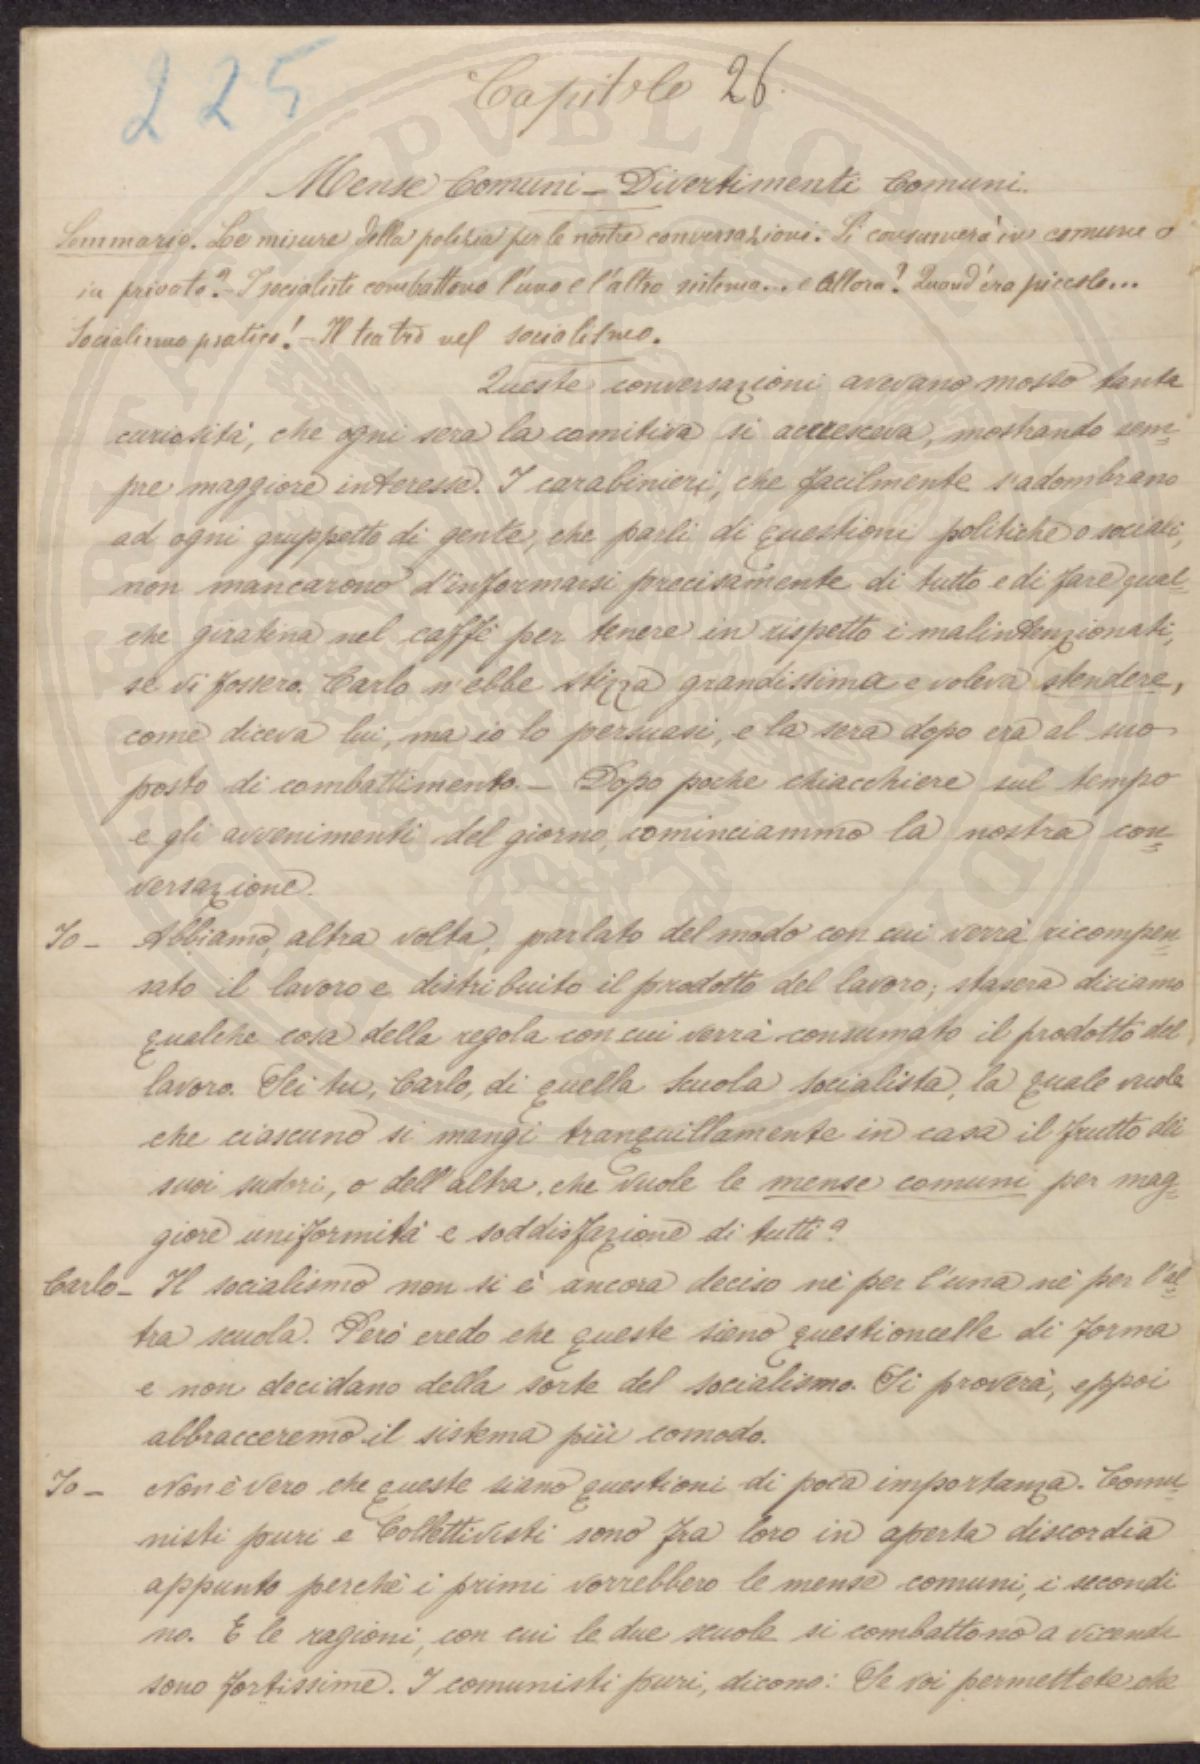 225
Capitolo 26.
Mense Comuni – Divertimenti Comuni.
Sommario. Le misure della polizia per le nostre conversazioni. Si consumerà in comune o
in privato? – I socialisti combattono l'uno e l'altro sistema... e allora? Quand'ero piccolo...
Socialismo pratico! – Il teatro nel socialismo.
Queste conversazioni avevano mosso tanta
curiosità, che ogni sera la comitiva si accresceva, mostrando sem=
pre maggiore interesse. I carabinieri, che facilmente s'adombrano
ad ogni gruppetto di gente, che parli di questioni politiche o sociali,
non mancarono d'informarsi precisamente di tutto e di fare qual=
che giratina nel caffè per tenere in rispetto i malintenzionati,
se vi fossero. Carlo n'ebbe stizza grandissima e voleva stendere,
come diceva lui, ma io lo persuasi, e la sera dopo era al suo
posto di combattimento. – Dopo poche chiacchiere sul tempo
e gli avvenimenti del giorno, cominciammo la nostra con=
versazione.
Io – Abbiamo, altra volta, parlato del modo con cui verrà ricompen=
sato il lavoro e distribuito il prodotto del lavoro; stasera diciamo
qualche cosa della regola con cui verrà consumato il prodotto del
lavoro. Sei tu, Carlo, di quella scuola socialista, la quale vuole
che ciascuno si mangi tranquillamente in casa il frutto dei
suoi sudori, o dell'altra, che vuole le mense comuni per mag=
giore uniformità e soddisfazione di tutti?
Carlo – Il socialismo non si è ancora deciso nè per l'una nè per l'al=
tra scuola. Però credo che queste sieno questioncelle di forma
e non decidano della sorte del socialismo. Si proverà, eppoi
abbracceremo il sistema più comodo.
Io – Non è vero che queste siano questioni di poca importanza. Comu=
nisti puri e Collettivisti sono fra loro in aperta discordia
appunto perchè i primi vorrebbero le mense comuni, i secondi
no. E le ragioni, con cui le due scuole si combattono a vicenda
sono fortissime. I comunisti puri, dicono: Se voi permettete che